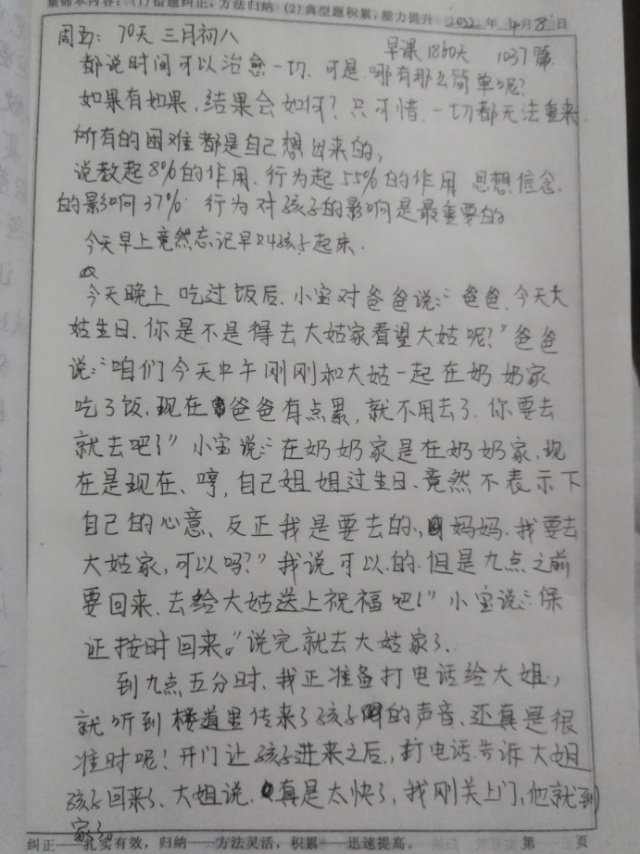 集锦本内容：(1)错题纠正，方法归纳 (2)典型题积累，能力提升 2022年4月8日
周五：70天 三月初八
早课1860天 1037篇
都说时间可以治愈一切.可是.哪有那么简单呢?
如果有如果,结果会如何?只可惜.一切都无法重来.
所有的困难都是自己想出来的,
说教起8%的作用.行为起55%的作用 思想信念.
的影响37%. 行为对孩子的影响是最重要的。
今天早上竟然忘记早24孩子起床.
今天晚上 吃过饭后.小宝对爸爸说:“爸爸.今天大
姑生日.你是不是得去大姑家看望大姑呢?”爸爸
说:“咱们今天中午刚刚和大姑一起在奶奶家
吃了饭.现在爸爸有点累,就不用去了.你要去
就去吧!”小宝说:“在奶奶家是在奶奶家.现
在是现在、哼,自己姐姐过生日.竟然不表示下
自己的心意、反正我是要去的.,妈妈.我要去
大姑家,可以吗?”我说可以.的.但是九点之前
要回来.去给大姑送上祝福吧!”小宝说:“保
证按时回来。”说完就去大姑家了.
到九点五分时.我正准备打电话给大姐,
就听到楼道里传来了孩子的声音.还真是很
准时呢!开门让孩子进来之后,打电话告诉大姐
孩子回来了、大姐说.真是太快了,我刚关上门,他就到
家了。
纠正——扎实有效，归纳——方法灵活，积累——迅速提高。 第 页